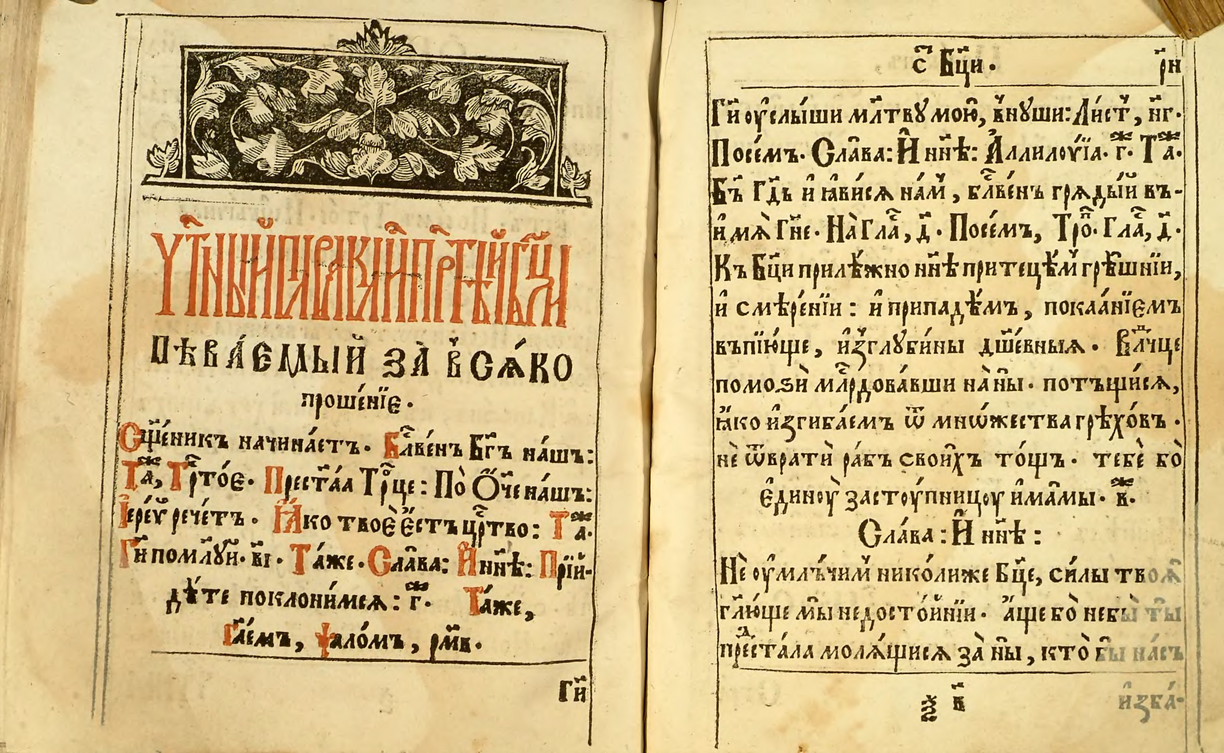 пѣва́емый за̀ в̾сѧ́ко
проше́нїе.
Сщ҃е́никъ начина́етъ. Бл҃ве́нъ Бг҃ъ на́шъ:
Та́ж, Трⷭ҇то́е. Прест҃а́ѧ Трⷪ҇це: По̀ Ѻ҆́ч҃е на́шъ:
Іере́ѵ рече́тъ. Ꙗ҆́ко твоѐ є҆́стъ црⷭ҇тво: Таⷤ.
Гдⷭ҇и поми́лꙋй. в҃і. Та́же. Сла́ва: И҆ нн҃ѣ: Прїй-
дѣ́те поклони́мсѧ: г҃ⷤ. Та́же,
Гл҃емъ, ѱало́мъ, рм҃в.
Гⷭ҇и
с̾ Бц҃и. рн
Гⷭ҇и ᲂу҆слы́ши мл҃твꙋ мою̀, в̾нꙋши: Листⷭ҇, н҃г.
Посе́мъ. Сла́ва: И҆ нн҃ѣ: А҆ллилꙋ́їа. г҃ⷤ. Таⷤ.
Бг҃ъ Гдⷭ҇ь и҆ ꙗ҆ви́сѧ на́мъ, бл҃ве́нъ грѧды́й въ-
и҆́мѧ Гн҃е. На̀ гла́сⷭ, д҃. Посе́мъ, Тро́пⷬ. Гла́сⷭ, д҃.
Къ Бц҃и прилѣ́жно нн҃ѣ притеце́мъ грѣ́шнїи,
и҆ смѣре́нїи: и҆ припадѣ́мъ, покаа́нїемъ
въпїю́ще, и҆зглꙋбины̀ дш҃е́вныѧ. Влⷣчце
помозѝ млⷭ҇рдова́вши на́ны. потъщи́сѧ,
ꙗ҆́ко и҆згиба́емъ ѿ мнѡ́жества грѣхо́въ.
нѐ ѿвратѝ ра́бъ свои́хъ то́щъ. тебѐ бо̀
є҆ди́нꙋ засто́ꙋпницꙋ и҆́мамы. в҃ⷤ.
Сла́ва: И҆ нн҃ѣ:
Нѐ ᲂу҆млъчи́мъ николи́же Бц҃е, си́лы твоѧ̀
гл҃юще мы̀ недосто́йнїи. а҆́ще бо̀ небы̀ ты̀
предⷭ҇ста́ла молѧ́щисѧ за̀ ны, кто̀ бы насъ
ѯ҃ в҃ и҆зба́-